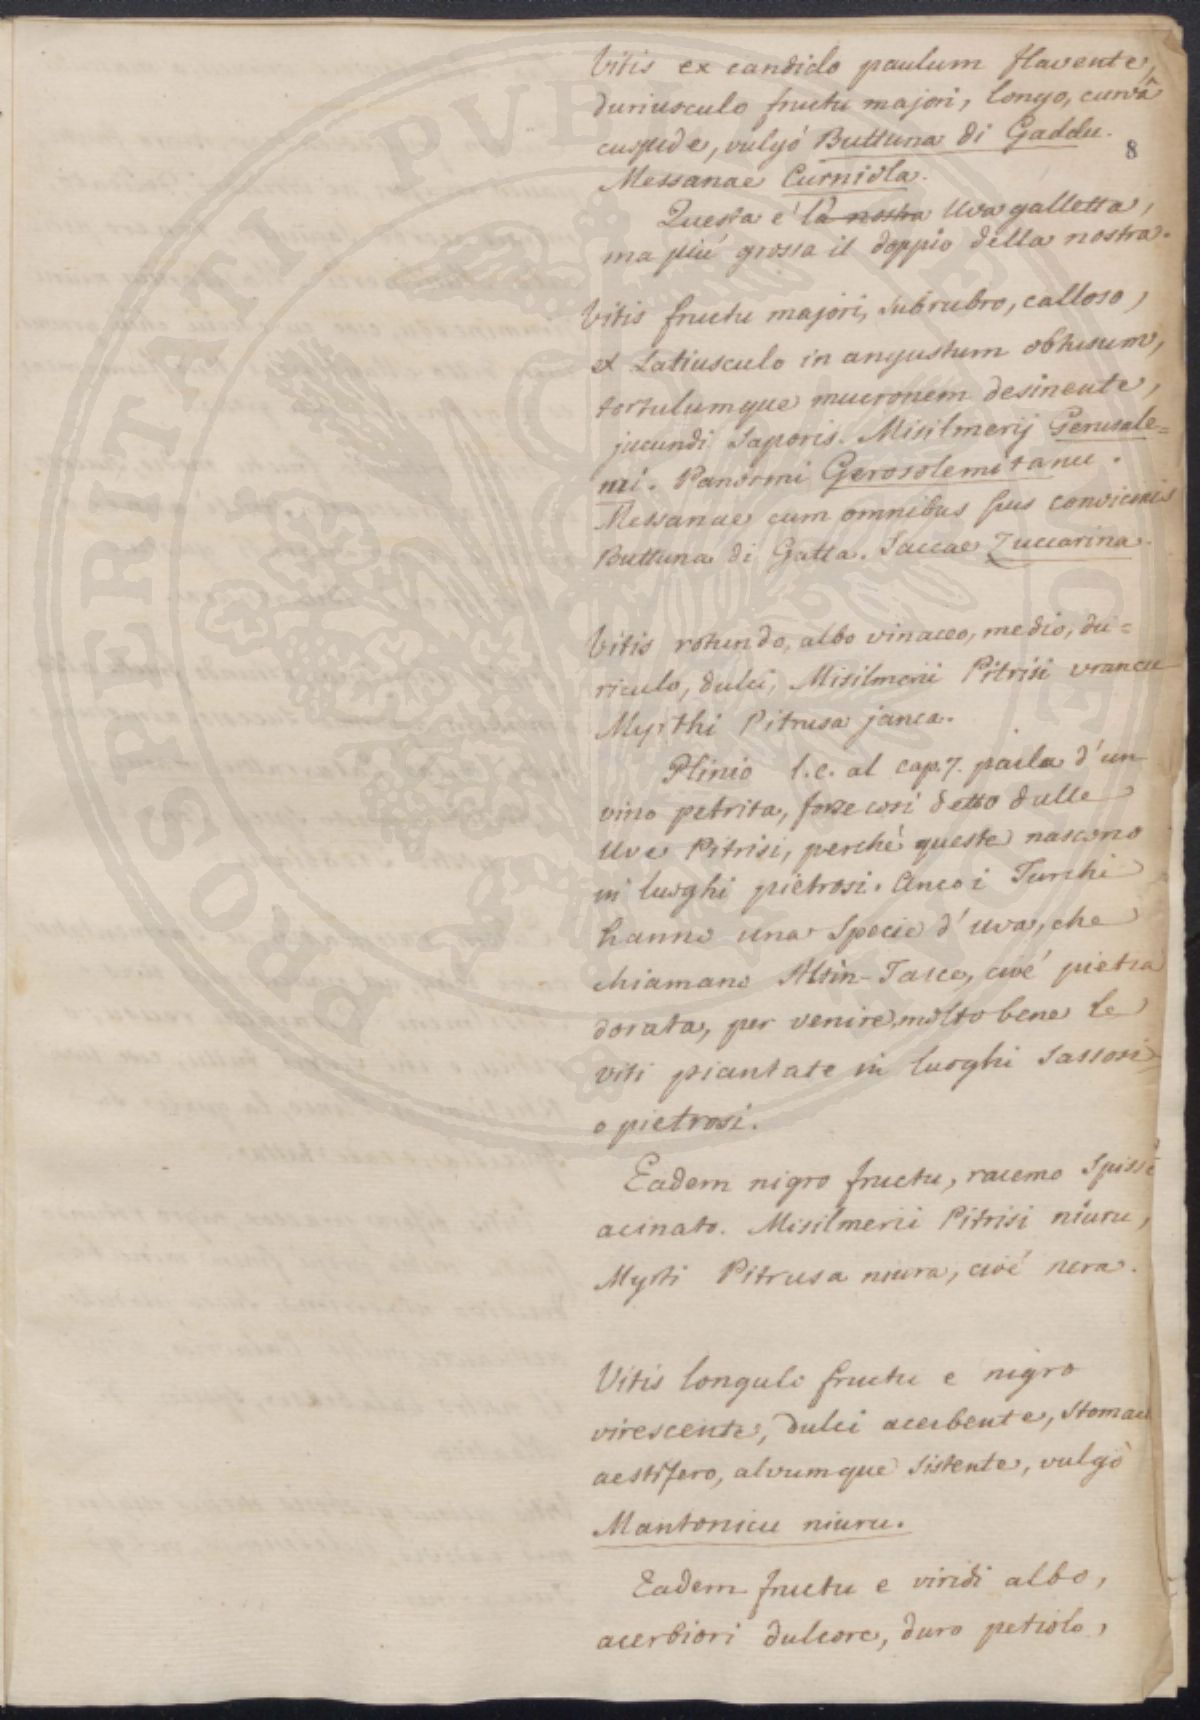 Vitis ex candido paulum flavente,
duriusculo fructu majori, longo, curvâ
cuspide, vulgó Buttuna di Gaddu.
8
Messanae Curniola.
Questa e' la nostra Uva galletta,
ma piú grossa il doppio della nostra.
Vitis fructu majori, subrubro, calloso,
et Latiusculo in angustum obtusum,
tortulumque mucronem desinente,
jucundi Saporis. Misilmerij Gerusale=
mi. Panormi Gerosolemitanu.
Messanae cum omnibus suis convicinis
Buttuna di Gatta. Saccae Zuccarina.
Vitis rotundo, albo vinaceo, medio, du=
riculo, dulci, Misilmerii Pitrisi vrancu
Myrthi Pitrusa janca.
Plinio l.c. al cap. 7. parla d'un
vino petrita, forse cosi detto dalle
Uve Pitrisi, perché queste nascono
in luoghi pietrosi. Anco i Turchi
hanno una Specie d'uva, che
chiamano Altin-Tasce, cioé pietra
dorata, per venire molto bene le
viti piantate in luoghi Sassosi
o pietrosi.
Eadem nigro fructu, racemo Spissé
acinato. Misilmerii Pitrisi niuru,
Myrti Pitrusa niura, cioé nera.
Vitis longulo fructu e nigro
virescente, dulci acerbente, Stomac
aestifero, alvumque Sistente, vulgò
Mantonicu niuru.
Eadem fructu e viridi albo,
acerbiori dulcore, duro petiolo,
POSPERITATI PVBLICAE